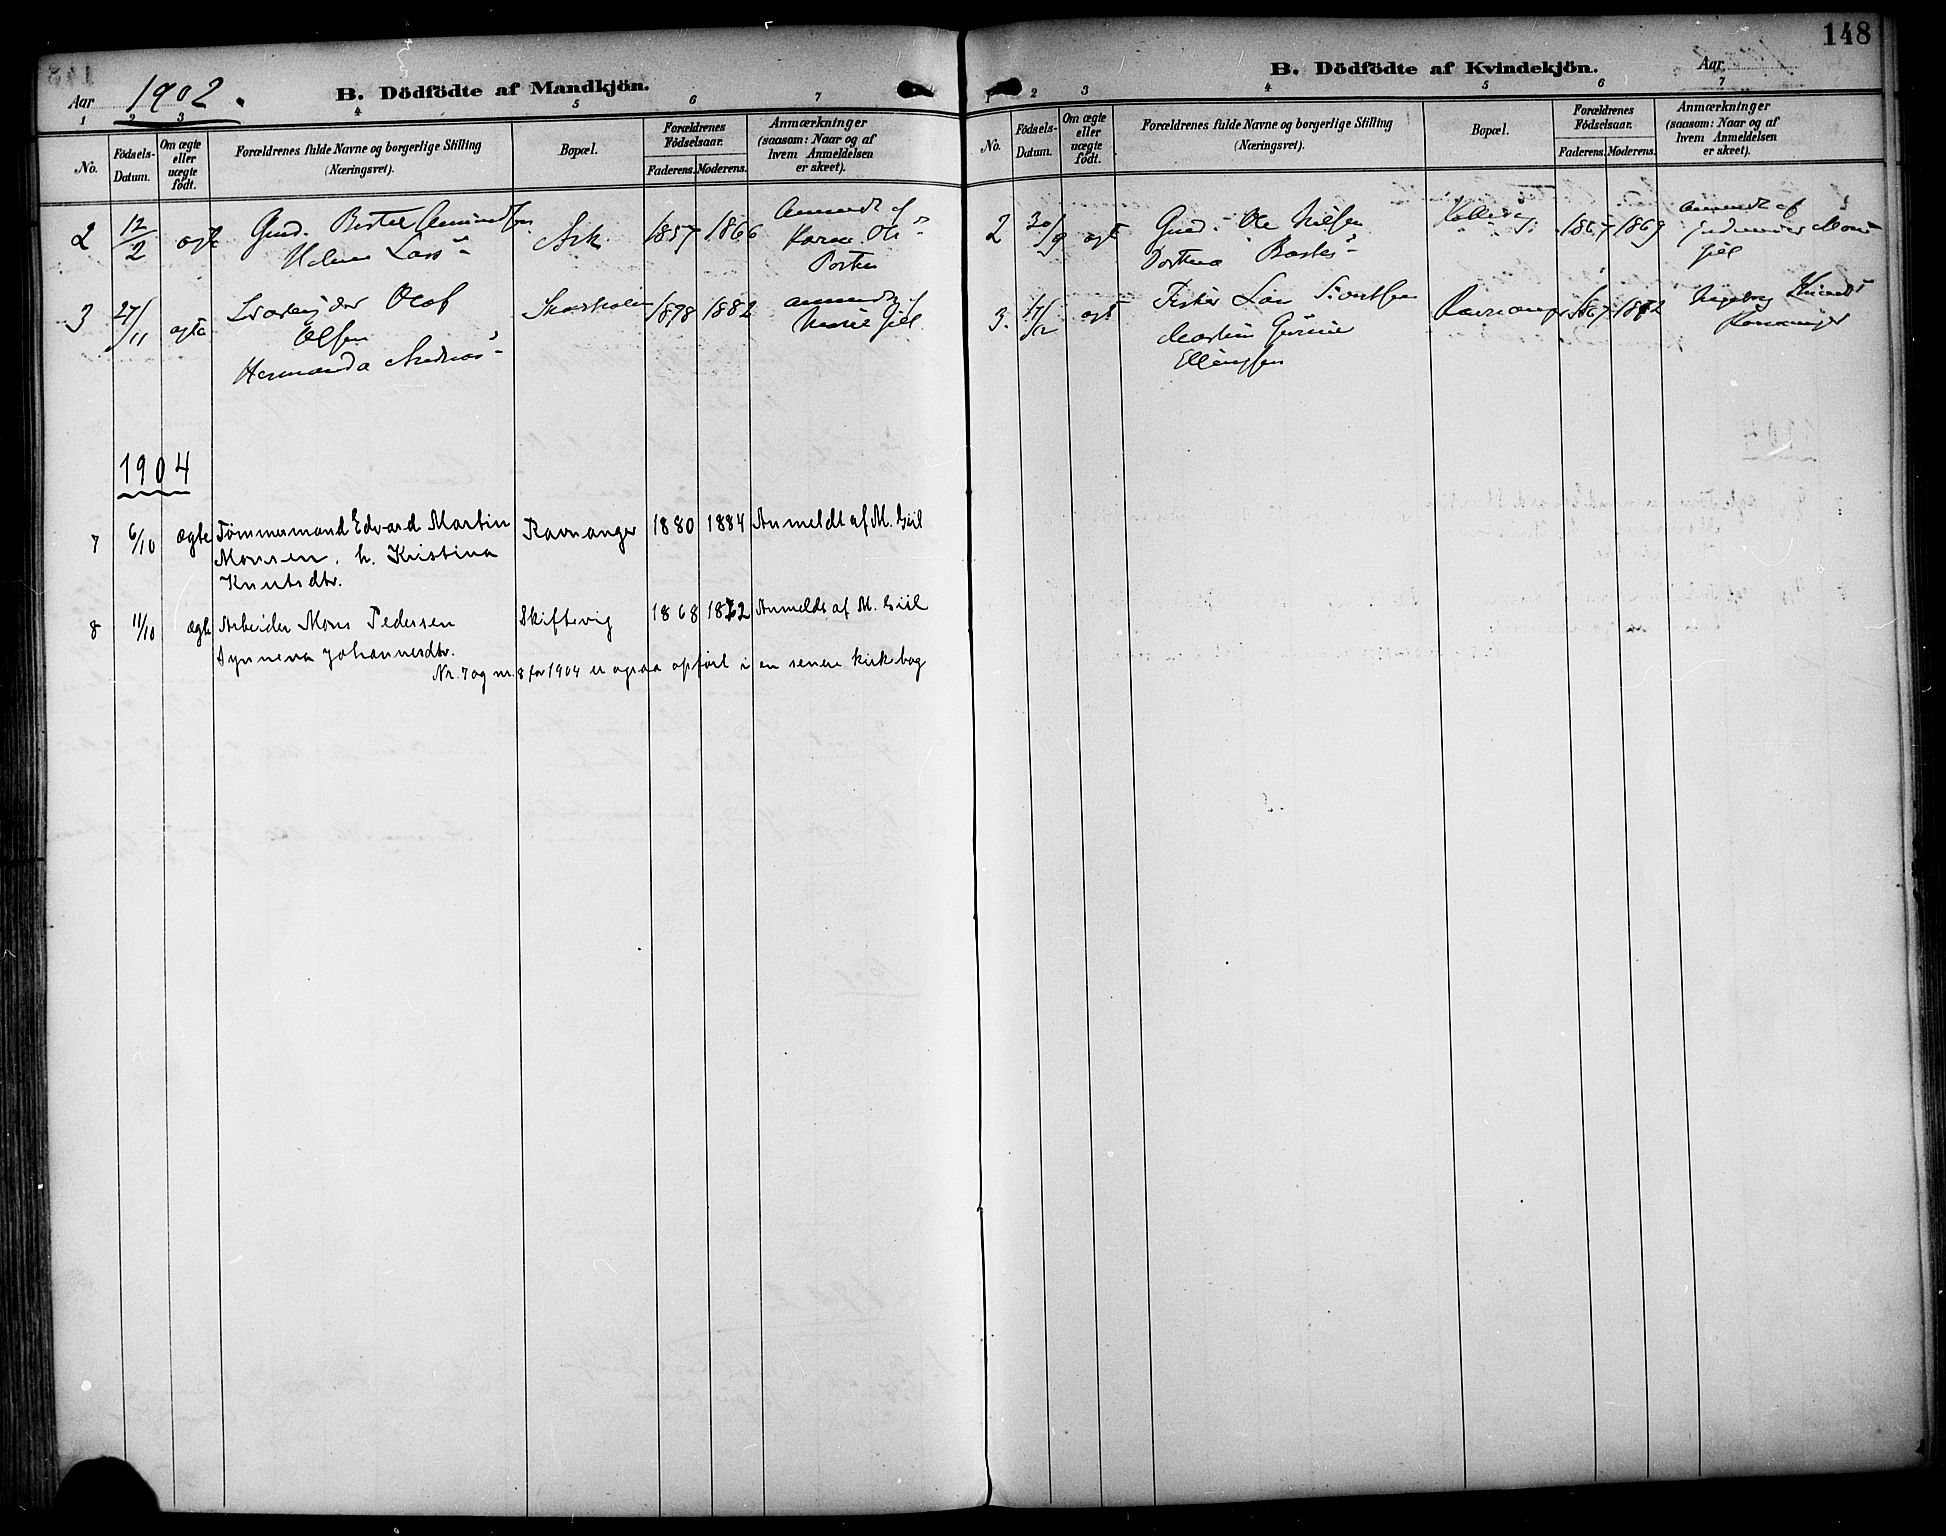 148
Aar 1902.
B. Dödfödte af Mandkjön.
1 2 3 4 5 6 7
No.
Födsels-Datum.
Om ægte eller uægte födt.
Forældrenes fulde Navne og borgerlige Stilling
(Næringsvei).
Bopæl.
Forældrenes Födselsaar.
Faderens. Moderens.
Anmærkninger
(saasom: Naar og af
hvem Anmeldelsen
er skeet).
2 12/2 ægte Gmd. Bertel Amundsen Ask. 1857 1866 Anmeldt af
Helene Lars
3 27/11 ægte Olaf 1878 1882 anmeldt af
Olsen
Hermanda Andreas
1904
7 6/10 ægte Tømmermand Edvard Martin Ravnanger 1880 1884 Anmeldt af M. Giil
Monsen, h. Kristina
Knutsdtr.
8 11/10 ægte Arbeider Mons Pedersen Skiftesvig 1868 1872 Anmeldt af M. Giil
Synneva Johannesdtr.
Nr. 7 og nr. 8 for 1904 er ogsaa opført i en senere kirkebog
B. Dödfödte af Kvindekjön.
Aar
1 2 3 4 5 6 7
No.
Födsels-Datum.
Om ægte eller uægte födt.
Forældrenes fulde Navne og borgerlige Stilling
(Næringsvei).
Bopæl.
Forældrenes Födselsaar.
Faderens. Moderens.
Anmærkninger
(saasom: Naar og af
hvem Anmeldelsen
er skeet).
2 30/9 ægte Gmd. Ole Nilsen 1867 1869 anmeldt af
3. ægte Fisker Ravnanger 1867 1872 Ingeborg
Ellingsen Ravnanger